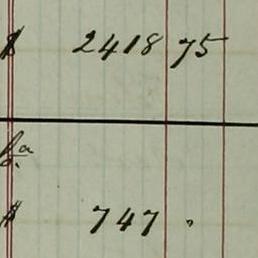 $ 2418 75
$ 747 "